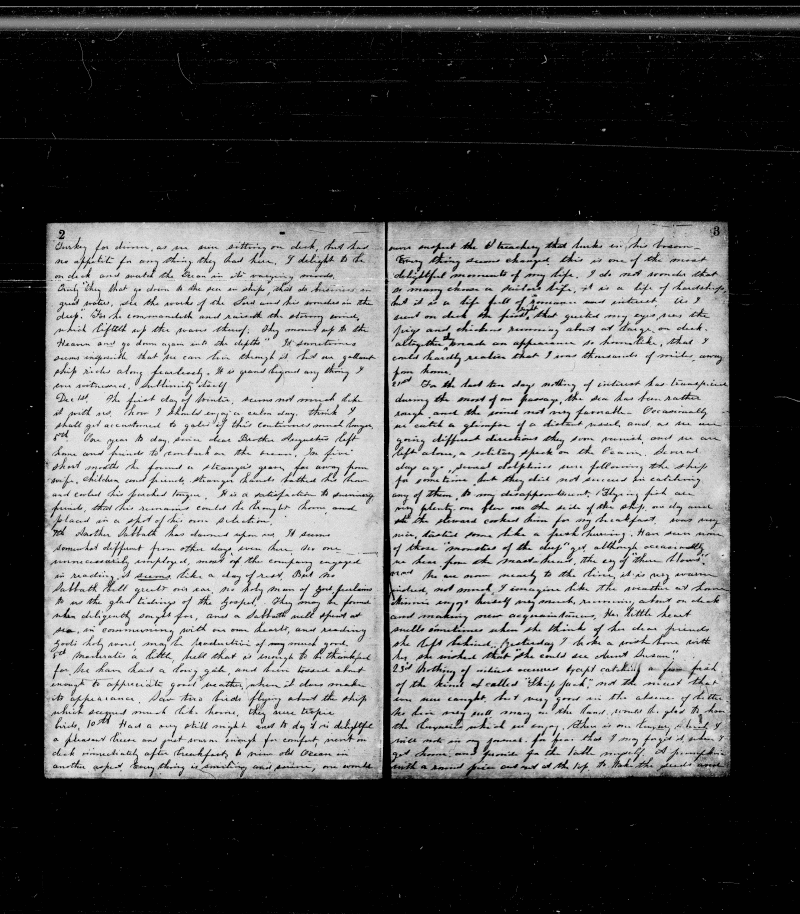 2
Turkey for dinner, as we were sitting on deck, but had
no appetite for any thing they had here, I delight to be
on deck and watch the Ocean in its varying moods.
Truly "they that go down to the sea in ships, that do business in
great waters, see the works of the Lord and his wonders in the
deep. For he commandeth and raiseth the strong wind,
which lifteth up the waves thereof, They mount up to the
Heaven and go down again into the depths" It sometimes
seems impossible that we can live through it but our gallant
ship rides along fearlessly. It is grand beyond any thing I
ever witnessed. Sublimity itself.
Dec 1st. The first day of winter, seems not much like
it with us, how I should enjoy a calm day. think I
shall get accustomed to gales if this continues much longer,
5th One year to day, since dear Brother Augustus left
home and friends to embark on the ocean, In five
short months he found a stranger's grave, far away from
wife, children and friends, stranger hands bathed his brow
and cooled his parched tongue. It is a satisfaction to surviving
friends, that his remains could be brought home and
placed in a spot of his own selection.
7th Another Sabbath has dawned upon us, It seems
somewhat different from other days even here, no one
unnecessarily employed, most of the company engaged
in reading, it seems like a day of rest, But no
Sabbath bell greets our ear, no holy man of God proclaims
to us the glad tidings of the Gospel, They may be found
when diligently sought for, and a Sabbath well spent at
sea, in communing with our own hearts, and reading
God's holy word may be productive of very much good,
8th Moderates a little, well that is enough to be thankful
for, We have had a long gale, and been tossed about
enough to appreciate good weather, when it does make
its appearance, Saw two birds flying about the ship
which seemed much like home, they were tropic
birds, 10th Had a very still night and to day it is delightful
a pleasant breeze and just warm enough for comfort, went on
deck immediately after breakfast, to view old Ocean in
another aspect. Every thing is smiling and serene, one would
3
never suspect the treachery that lurks in his bosom—
Every thing seems changed, this is one of the most
delightful moments of my life. I do not wonder that
so many choose a sailor's life, it is a life of hardships,
but it is a life full of romance and interest, As I
went on deck the first sight, that greeted my eyes, was the
pigs and chickens running about at large, on deck.
altogether they made an appearance so homelike, that I
could hardly realize that I was thousands of miles away
from home.
21st For the last ten days nothing of interest has transpired
during the most of our passage, the sea has been rather
rough, and the wind not very favorable. Occasionally
we catch a glimpse of a distant vessel, and as we are
going different directions they soon vanish, and we are
left alone, a solitary speck on the Ocean. Several
days ago, several dolphins were following the ship
for sometime, but they did not succeed in catching
any of them, to my disappointment, Flying fish are
very plenty, one flew over the side of the ship, one day and
the steward cooked him for my breakfast, was very
nice, tasted some like a fresh herring. Have seen none
of those "monsters of the deep" yet, although occasionally,
we hear from the mast-head, the cry of "there blows".
We are now nearly to the line, it is very warm
indeed, not much, I imagine like the weather at home
enjoys herself very much, running about on deck
and making new acquaintances, Her little heart
swells sometimes when she thinks of her dear friends
she left behind, Yesterday I
she wished that "she could see Aunt Susan."
23rd Nothing of interest occurred except catching a few fish
of the kind called "Skip jack," not the nicest that
ever was caught, but very good in the absence of better
the
the luxuries which we enjoy, There is one luxury, I
for fear that I may forget it when I
get home, and promise for the little myself, A pumpkin
with a round piece cut out at the top to take the seeds out